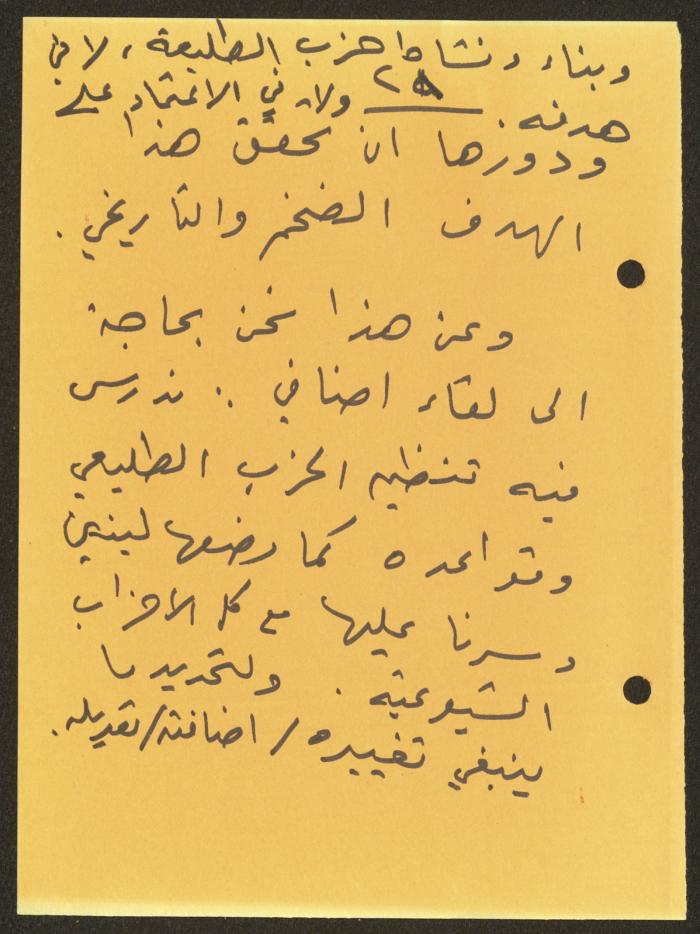 وبناء ونشاط حزب الطليعة، لا في
هدفه. ٢٨ ولا في الاعتماد على
ودورها ان تحقق هذا
الهدف الضخم والتاريخي.
وعن هذا نحن بحاجة
الى لقاء اضافي .. ندرس
فيه تنظيم الحزب الطليعي
وقواعده كما وضعها لينين
وسرنا عليها مع كل الاحزاب
الشيوعية. ولتحديد ما
ينبغي تغييره / اضافته / تعديله.